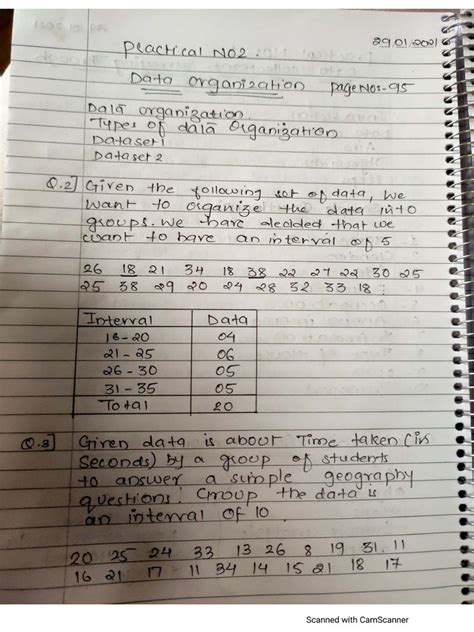 29.01.2021
Practical No2.
Data organization
page Nos-95
Data organization.
Types of data Organization
Dataset 1
Dataset 2
Q.2] Given the following set of data, we
want to organize the data into
groups. we have decided that we
want to have an interval of 5
26 18 21 34 18 38 22 27 22 30 25
25 38 29 20 24 28 32 33 18
Interval Data
16-20 04
21-25 06
26-30 05
31-35 05
Total 20
Q.3] Given data is about Time taken (in
Seconds) by a group of students
to answer a simple geography
questions. Group the data is
an interval of 10.
20 25 24 33 13 26 8 19 31. 11
16 21 17 11 34 14 15 21 18 17
Scanned with CamScanner